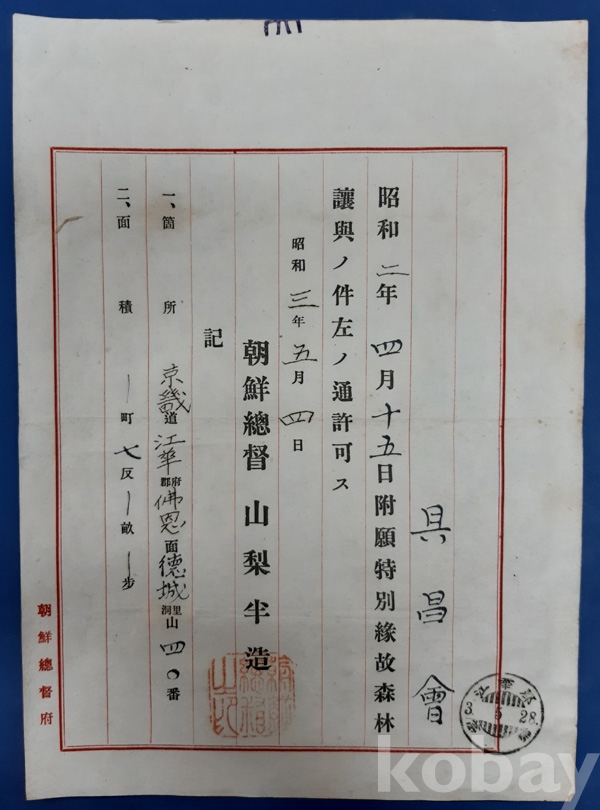 具昌會
昭和二年四月十五日附願特別緣故森林
讓與ノ件左ノ通許可ス
昭和三年五月四日
朝鮮總督 山梨半造
記
一、箇所 京畿道江華郡府佛恩面德城洞里山四〇番
二、面積 一町七反一畝一步
朝鮮總督府
3. 5 28.
kobay